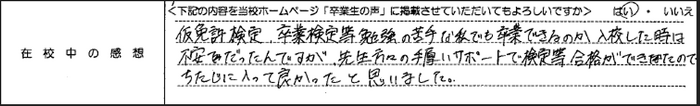 <下記の内容を当校ホームページ「卒業生の声」に掲載させていただいてもよろしいですか> はい ・ いいえ
在校中の感想
仮免許検定、卒業検定等勉強の苦手な私でも卒業できるのか、入校した時は
不安だったんですが、先生方々の手厚いサポートで検定等合格ができましたので
ちたじに入って良かったと思いました。